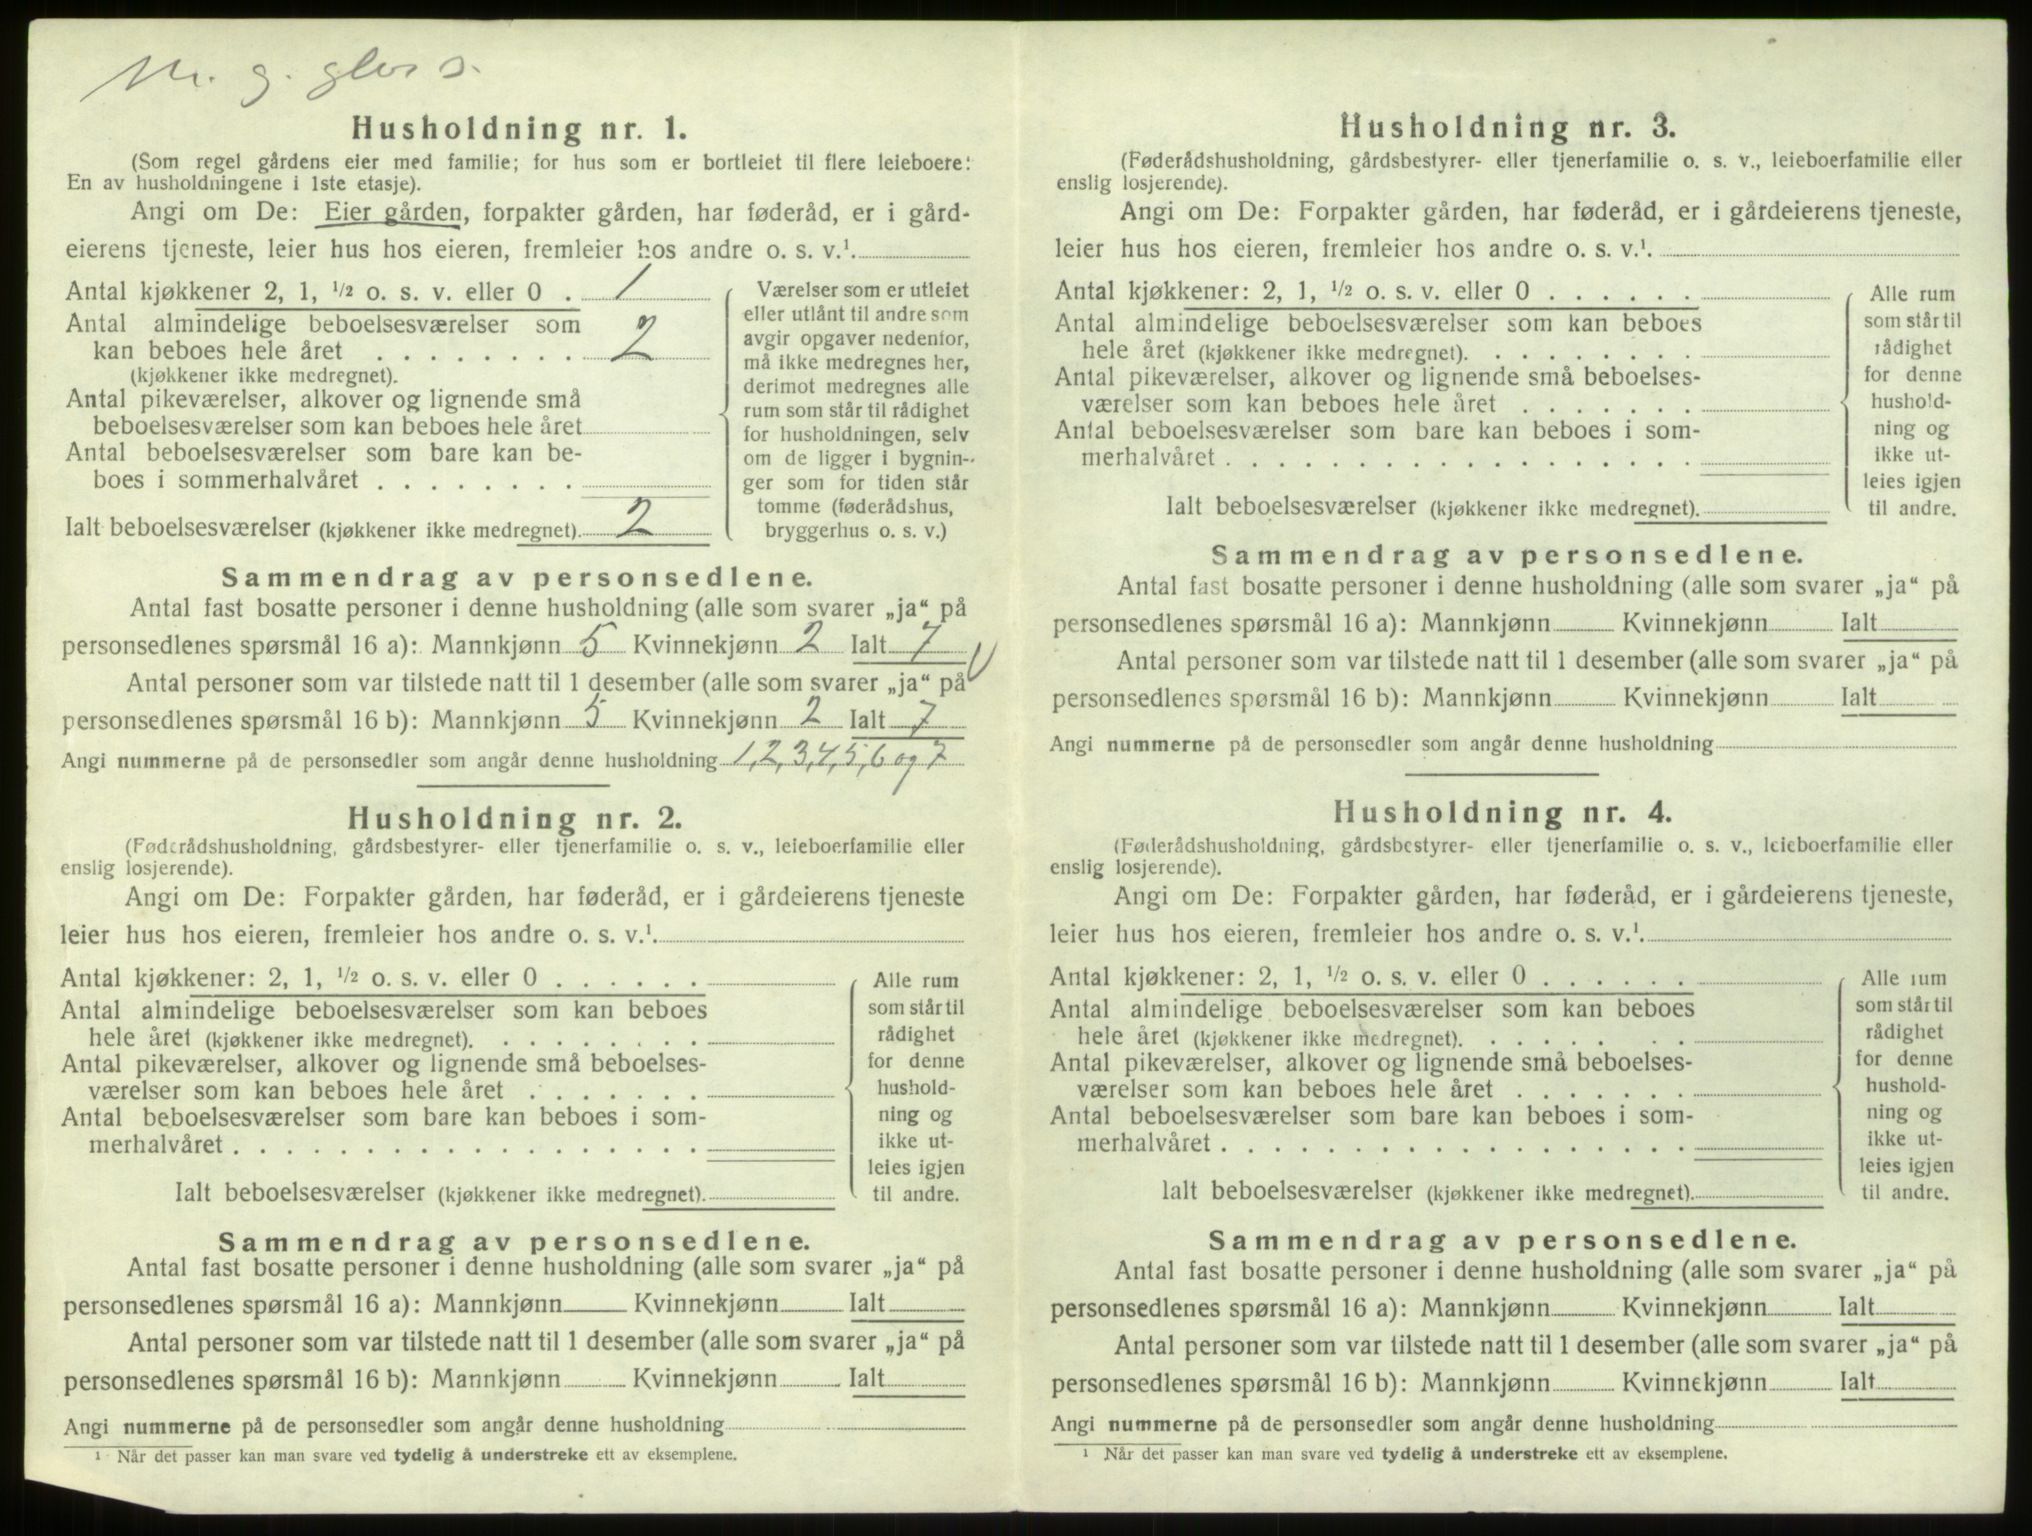 Husholdning nr. 1.
(Som regel gårdens eier med familie; for hus som er bortleiet til flere leieboere:
En av husholdningene i 1ste etasje).
Angi om De: Eier gården, forpakter gården, har føderåd, er i gård-
eierens tjeneste, leier hus hos eieren, fremleier hos andre o. s. v.¹.
Antal kjøkkener 2, 1, ½ o. s. v. eller 0 . 1
Antal almindelige beboelsesværelser som
kan beboes hele året . . . . . . . . 2
(kjøkkener ikke medregnet).
Antal pikeværelser, alkover og lignende små
beboelsesværelser som kan beboes hele året
Antal beboelsesværelser som bare kan be-
boes i sommerhalvåret . . . . . . . .
Ialt beboelsesværelser (kjøkkener ikke medregnet). 2
Værelser som er utleiet
eller utlånt til andre som
avgir opgaver nedenfor,
må ikke medregnes her,
derimot medregnes alle
rum som står til rådighet
for husholdningen, selv
om de ligger i bygnin-
ger som for tiden står
tomme (føderådshus,
bryggerhus o. s. v.)
Sammendrag av personsedlene.
Antal fast bosatte personer i denne husholdning (alle som svarer „ja“ på
personsedlenes spørsmål 16 a): Mannkjønn 5 Kvinnekjønn 2 Ialt 7
Antal personer som var tilstede natt til 1 desember (alle som svarer „ja“ på
personsedlenes spørsmål 16 b): Mannkjønn 5 Kvinnekjønn 2 Ialt 7
Angi nummerne på de personsedler som angår denne husholdning 1, 2, 3, 4, 5, 6 og 7
Husholdning nr. 2.
(Føderådshusholdning, gårdsbestyrer- eller tjenerfamilie o. s. v., leieboerfamilie eller
enslig losjerende).
Angi om De: Forpakter gården, har føderåd, er i gårdeierens tjeneste
leier hus hos eieren, fremleier hos andre o. s. v.¹.
Antal kjøkkener: 2, 1, ½ o. s. v. eller 0 . . . . . .
Antal almindelige beboelsesværelser som kan beboes
hele året (kjøkkener ikke medregnet). . . . . . . .
Antal pikeværelser, alkover og lignende små beboelses-
værelser som kan beboes hele året . . . . . . .
Antal beboelsesværelser som bare kan beboes i som-
merhalvåret . . . . . . . . . . . . . . . . . .
Ialt beboelsesværelser (kjøkkener ikke medregnet).
Alle rum
som står til
rådighet
for denne
hushold-
ning og
ikke ut-
leies igjen
til andre.
Sammendrag av personsedlene.
Antal fast bosatte personer i denne husholdning (alle som svarer „ja“ på
personsedlenes spørsmål 16 a): Mannkjønn Kvinnekjønn Ialt
Antal personer som var tilstede natt til 1 desember (alle som svarer „ja“ på
personsedlenes spørsmål 16 b): Mannkjønn Kvinnekjønn Ialt
Angi nummerne på de personsedler som angår denne husholdning
¹ Når det passer kan man svare ved tydelig å understreke ett av eksemplene.
Husholdning nr. 3.
(Føderådshusholdning, gårdsbestyrer- eller tjenerfamilie o. s. v., leieboerfamilie eller
enslig losjerende).
Angi om De: Forpakter gården, har føderåd, er i gårdeierens tjeneste,
leier hus hos eieren, fremleier hos andre o. s. v.¹.
Antal kjøkkener: 2, 1, ½ o. s. v. eller 0 . . . . . .
Antal almindelige beboelsesværelser som kan beboes
hele året (kjøkkener ikke medregnet). . . . . . . .
Antal pikeværelser, alkover og lignende små beboelses-
værelser som kan beboes hele året . . . . . . .
Antal beboelsesværelser som bare kan beboes i som-
merhalvåret . . . . . . . . . . . . . . . . . .
Ialt beboelsesværelser (kjøkkener ikke medregnet).
Alle rum
som står til
rådighet
for denne
hushold-
ning og
ikke ut-
leies igjen
til andre.
Sammendrag av personsedlene.
Antal fast bosatte personer i denne husholdning (alle som svarer „ja“ på
personsedlenes spørsmål 16 a): Mannkjønn Kvinnekjønn Ialt
Antal personer som var tilstede natt til 1 desember (alle som svarer „ja“ på
personsedlenes spørsmål 16 b): Mannkjønn Kvinnekjønn Ialt
Angi nummerne på de personsedler som angår denne husholdning
Husholdning nr. 4.
(Føderådshusholdning, gårdsbestyrer- eller tjenerfamilie o. s. v., leieboerfamilie eller
enslig losjerende).
Angi om De: Forpakter gården, har føderåd, er i gårdeierens tjeneste,
leier hus hos eieren, fremleier hos andre o. s. v.¹.
Antal kjøkkener: 2, 1, ½ o. s. v. eller 0 . . . . . .
Antal almindelige beboelsesværelser som kan beboes
hele året (kjøkkener ikke medregnet). . . . . . . .
Antal pikeværelser, alkover og lignende små beboelses-
værelser som kan beboes hele året . . . . . . .
Antal beboelsesværelser som bare kan beboes i som-
merhalvåret . . . . . . . . . . . . . . . . . .
Ialt beboelsesværelser (kjøkkener ikke medregnet).
Alle rum
som står til
rådighet
for denne
hushold-
ning og
ikke ut-
leies igjen
til andre.
Sammendrag av personsedlene.
Antal fast bosatte personer i denne husholdning (alle som svarer „ja“ på
personsedlenes spørsmål 16 a): Mannkjønn Kvinnekjønn Ialt
Antal personer som var tilstede natt til 1 desember (alle som svarer „ja“ på
personsedlenes spørsmål 16 b): Mannkjønn Kvinnekjønn Ialt
Angi nummerne på de personsedler som angår denne husholdning
¹ Når det passer kan man svare ved tydelig å understreke ett av eksemplene.